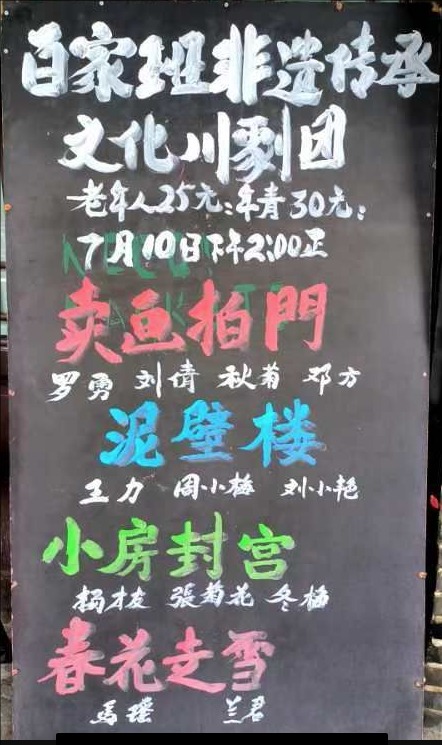 百家班非遗传承
文化川剧团
老年人25元:年青30元:
7月10日下午2:00正
卖画拍門
罗勇 刘倩 秋菊 邓方
泥壁楼
王力 周小梅 刘小艳
小房封宫
杨才友 張菊花 冬梅
春花走雪
馬瑶 兰君